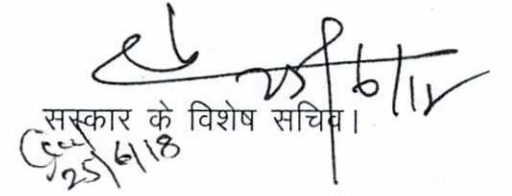 25/6/18
सरकार के विशेष सचिव।
25/6/18